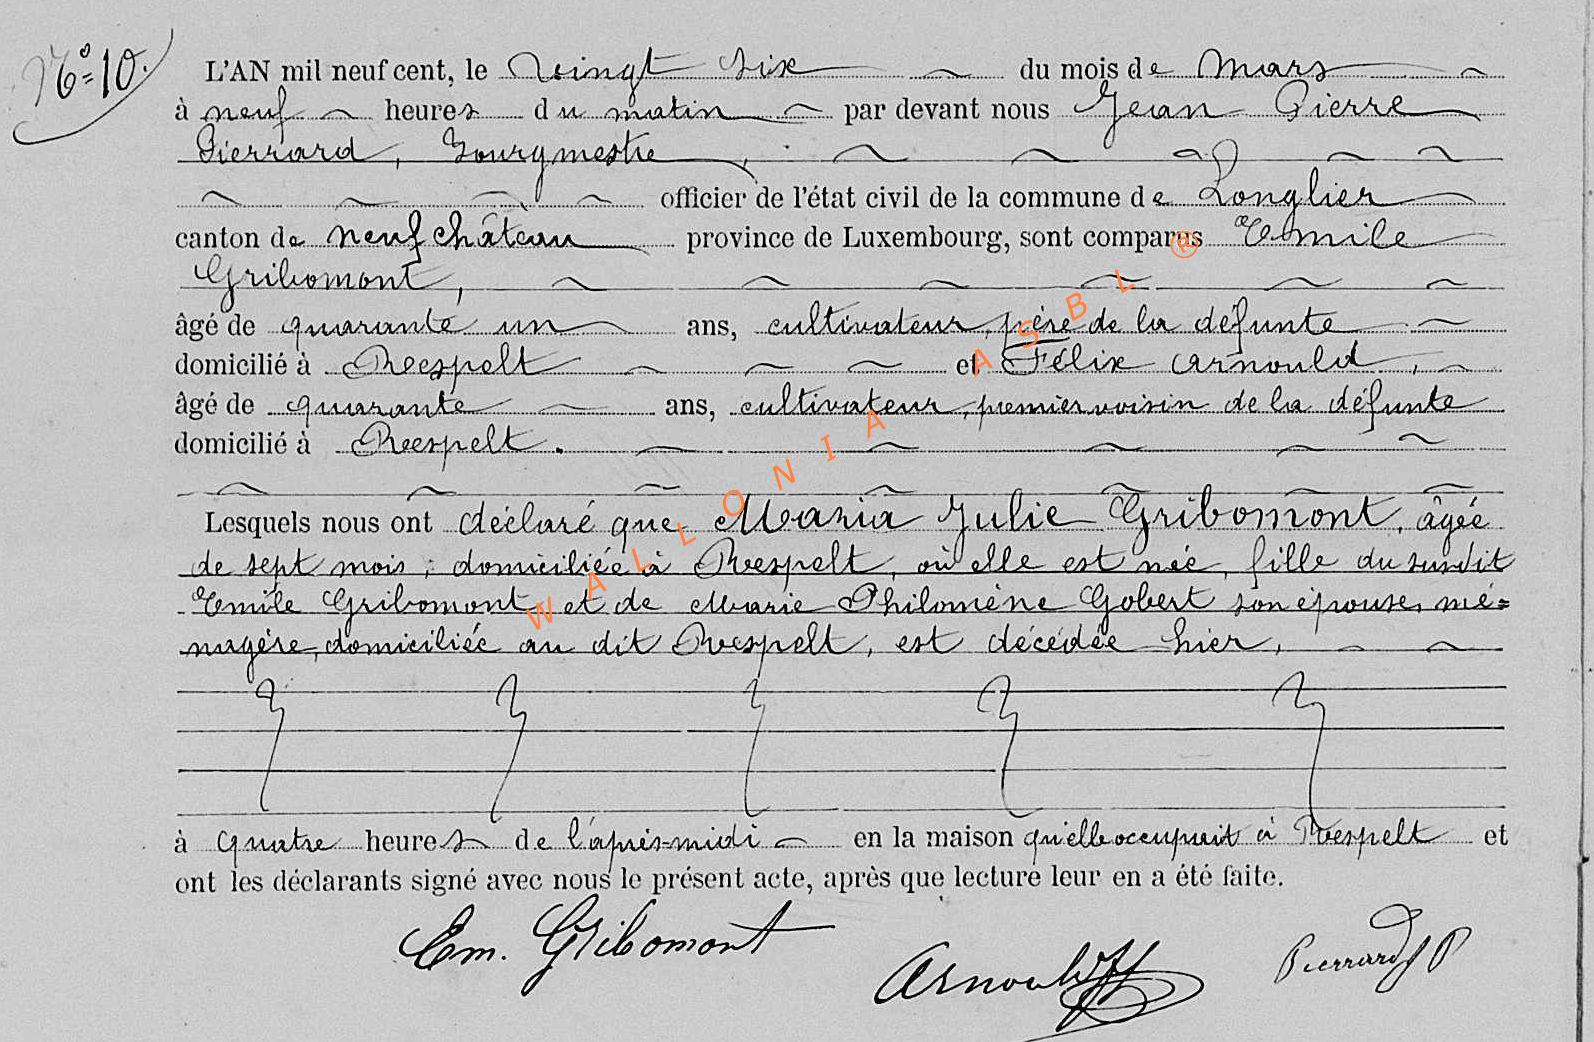 N° 10.
L'AN mil neuf cent, le vingt six du mois de mars
à neuf heures du matin par devant nous Jean Pierre
Pierrard, Bourgmestre,
officier de l'état civil de la commune de Longlier
canton de neufchâteau province de Luxembourg, sont comparus Emile
Gribomont,
âgé de quarante un ans, cultivateur, père de la défunte
domicilié à Respelt et Félix Arnould,
âgé de quarante ans, cultivateur, premier voisin de la défunte
domicilié à Respelt.
Lesquels nous ont déclaré que Maria Julie Gribomont, âgée
de sept mois, domiciliée à Respelt, où elle est née, fille du susdit
Emile Gribomont et de Marie Philomène Gobert son épouse, mé=
nagère, domiciliée au dit Respelt, est décédée hier,
à quatre heures de l'après-midi en la maison qu'elle occupait à Respelt et
ont les déclarants signé avec nous le présent acte, après que lecture leur en a été faite.
Em. Gribomont
Arnould f
Pierrard J P
WALLONIA ASBL ®